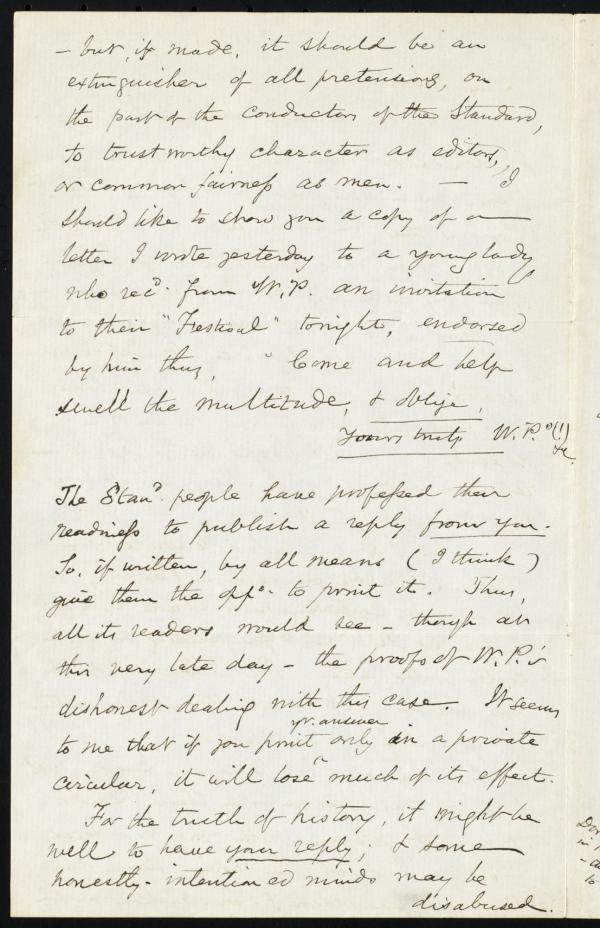 - but, if made, it should be an
extinguisher of all pretensions, on
the part of the conductors of the Standard,
to trustworthy character as editors,
or common fairness as men. — I
should like to show you a copy of a
letter I wrote yesterday to a young lady
who rec'd. from W.P. an invitation
to their "Festival" tonight, endorsed
by him thus, "Come and help
swell the multitude, & oblige,
Yours truly W.P." (!)
&c.
The Stand. people have professed their
readiness to publish a reply from you.
So, if written, by all means (I think)
give them the oppy. to print it. Thus,
all its readers would see - though at
this very late day - the proofs of W.P.'s
dishonest dealing with this case. It seems
to me that if you print yr. answer only in a private
circular, it will lose much of its effect.
For the truth of history, it might be
well to have your reply; & some
honestly-intentioned minds may be
disabused.